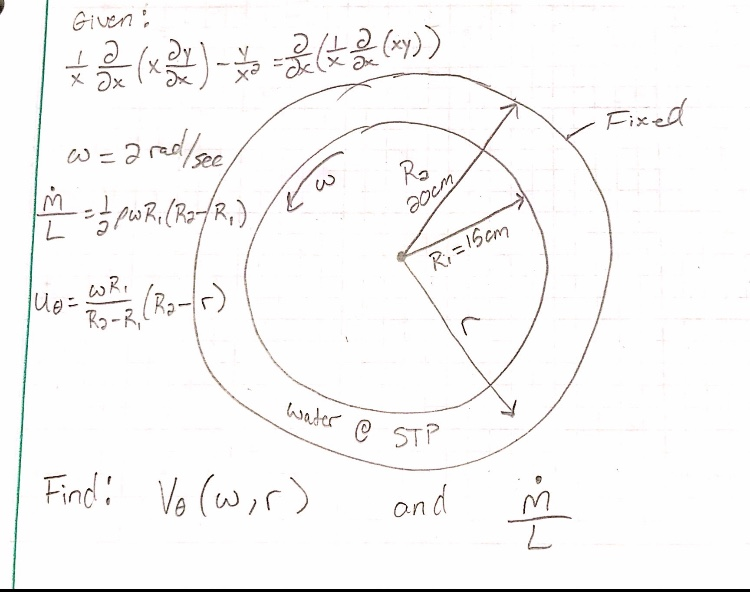 Given:
1/x ∂/∂x (x ∂y/∂x) - y/x² = ∂/∂x (1/x ∂/∂x (xy))
Fixed
ω = 2 rad/sec
ω
R₂
20cm
ṁ/L = 1/2 ρωR₁(R₂-R₁)
R₁=15cm
uθ = ωR₁/(R₂-R₁) (R₂-r)
r
water @ STP
Find: Vθ(ω,r) and ṁ/L